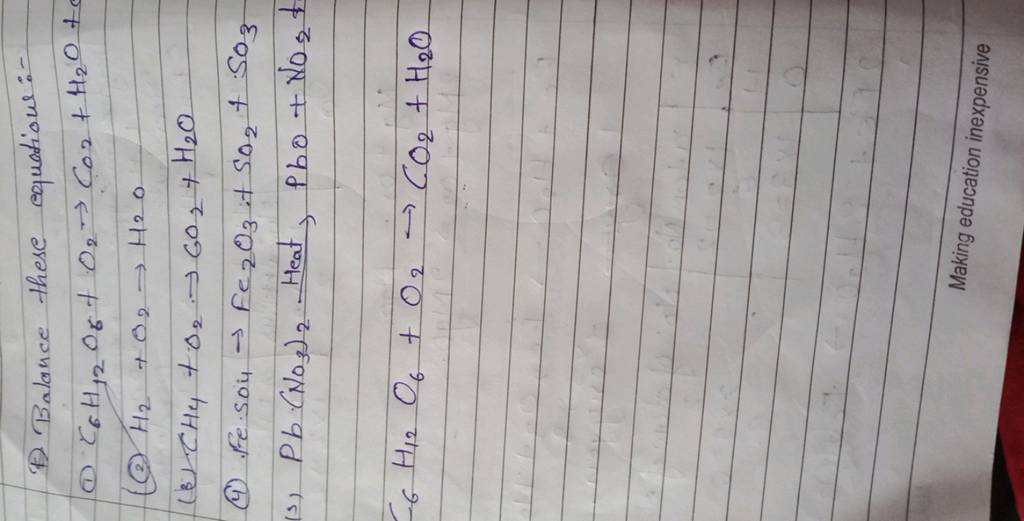 1) Balance these equations:-
(1) C6H12O6 + O2 → CO2 + H2O +
(2) H2 + O2 → H2O
(3) CH4 + O2 → CO2 + H2O
(4) FeSO4 → Fe2O3 + SO2 + SO3
(5) Pb(NO3)2 Heat→ PbO + NO2 +
C6 H12 O6 + O2 → CO2 + H2O
Making education inexpensive